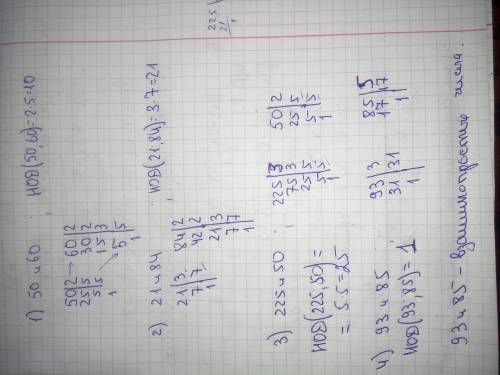 225
21
1
1) 50 и 60 НОД(50,60)=2·5=10
50|2 → 60|2
25|5 30|2
5|5 15|3
1 5|5
1
2) 21 и 84 НОД(21,84)=3·7=21
21|3 84|2
7|7 42|2
1 21|3
7|7
1
3) 225 и 50 225|3 50|2
НОД(225,50)= 75|3 25|5
=5·5=25 25|5 5|5
5|5 1
1
4) 93 и 85 93|3 85|5
НОД(93,85)=1 31|31 17|17
1 1
93 и 85 – взаимнопростые числа.